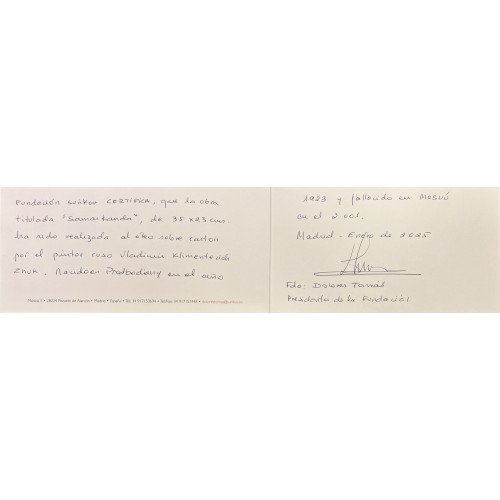 Fundación Surikov CERTIFICA, que la obra
titulada "Samarkanda", de 35 x 23 cms.
ha sido realizada al óleo sobre cartón
por el pintor ruso Vladimir Klimentevich
Zhuk. Nacido en en el año
28224 Pozuelo de Alarcón • Madrid • España • Tel. •
1923 y fallecido en Moscú
en el 2001.
Madrid - Enero de 2025
Fdo: Dolores Tomás
Presidenta de la Fundación